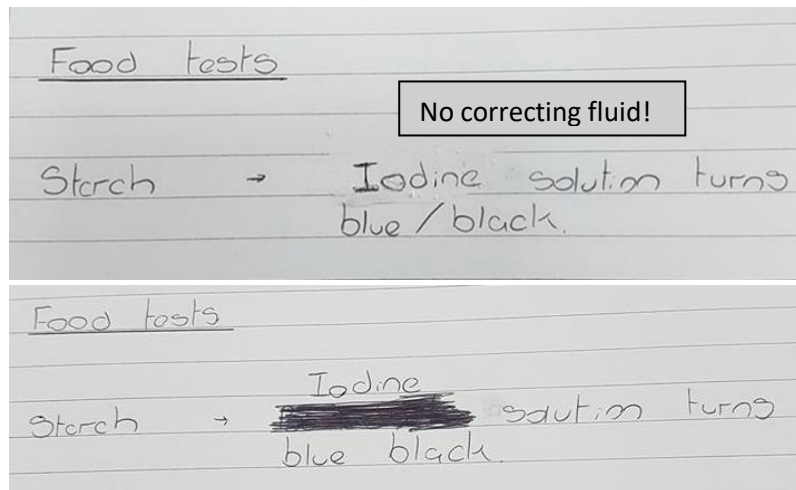 Food tests
No correcting fluid!
Starch → Iodine solution turns
blue / black.
Food tests
Iodine
Starch → solution turns
blue black.